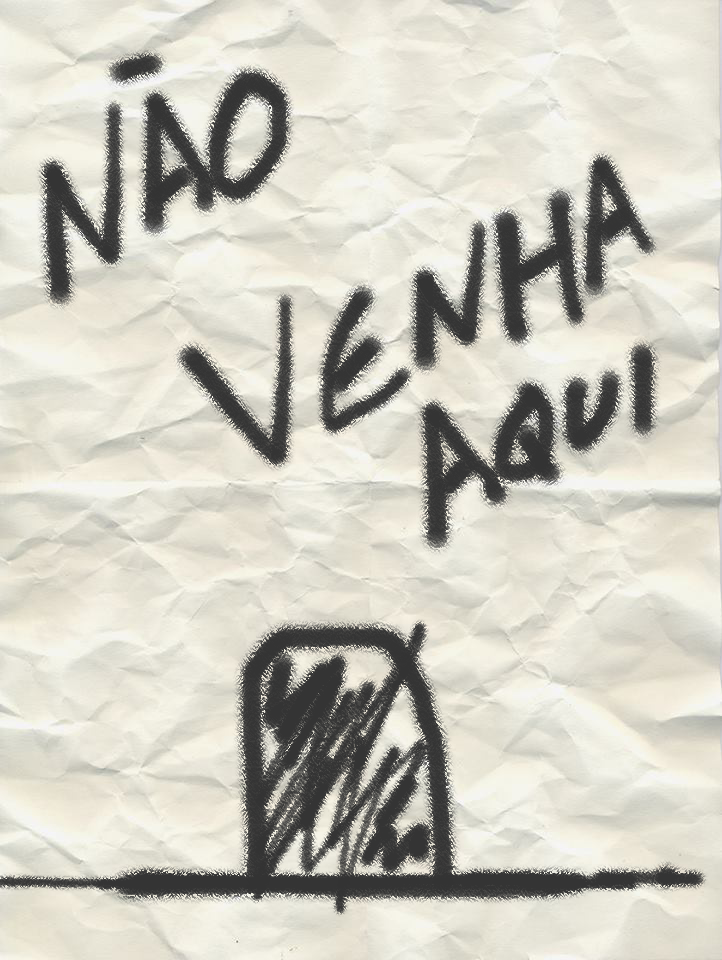 NÃO
VENHA
AQUI